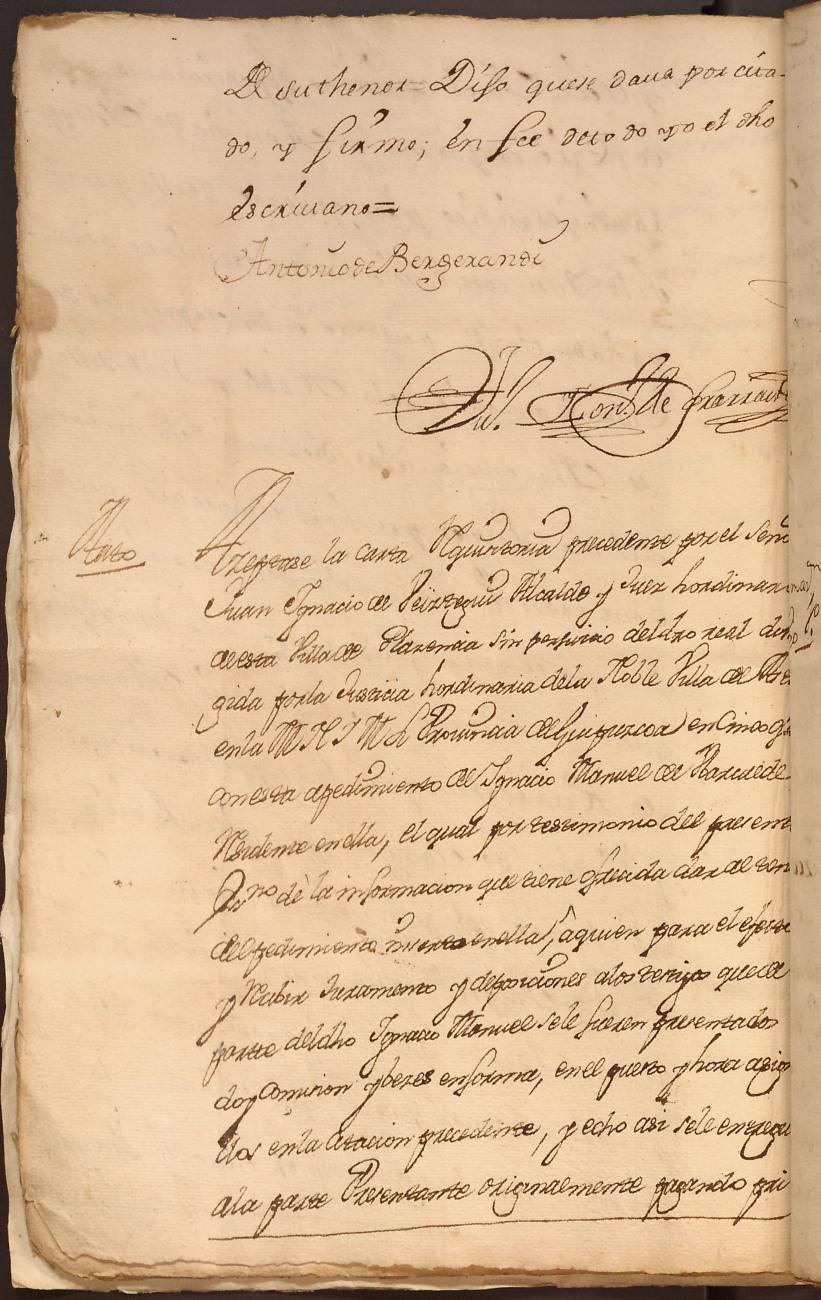 De su thenor = Dijo que se daua por cita-
do, y firmo; en fee de todo yo el dho
escriuano =
Antonio de Bergerandi
Auto
Azeptase la carta Requisitoria precedente por el Señ
Juan Ignacio de Alcalde y Juez hordinar
de esta Villa de Plazencia sin perjuicio del dro real diri
gida por la Justicia hordinaria dela Noble Villa de
en la M N I M L Prouincia de Guipuzcoa en
con esta a pedimiento de Ignacio Manuel de
Residente en ella, el qual por testimonio del present
Ssno dè la informacion que tiene ofrecida dar al ten
del pedimiento inserto en ella, a quien para el efecto
y Reciuir Juramento y deposiciones a los testigos que de
parte del dho Ignacio Manuel se le fueren presentados
doy Comision y bezes en forma, en el puesto y hora asig
dos en la citacion precedente, y echo asi se le entregu
a la parte Presentante originalmente pagando pri